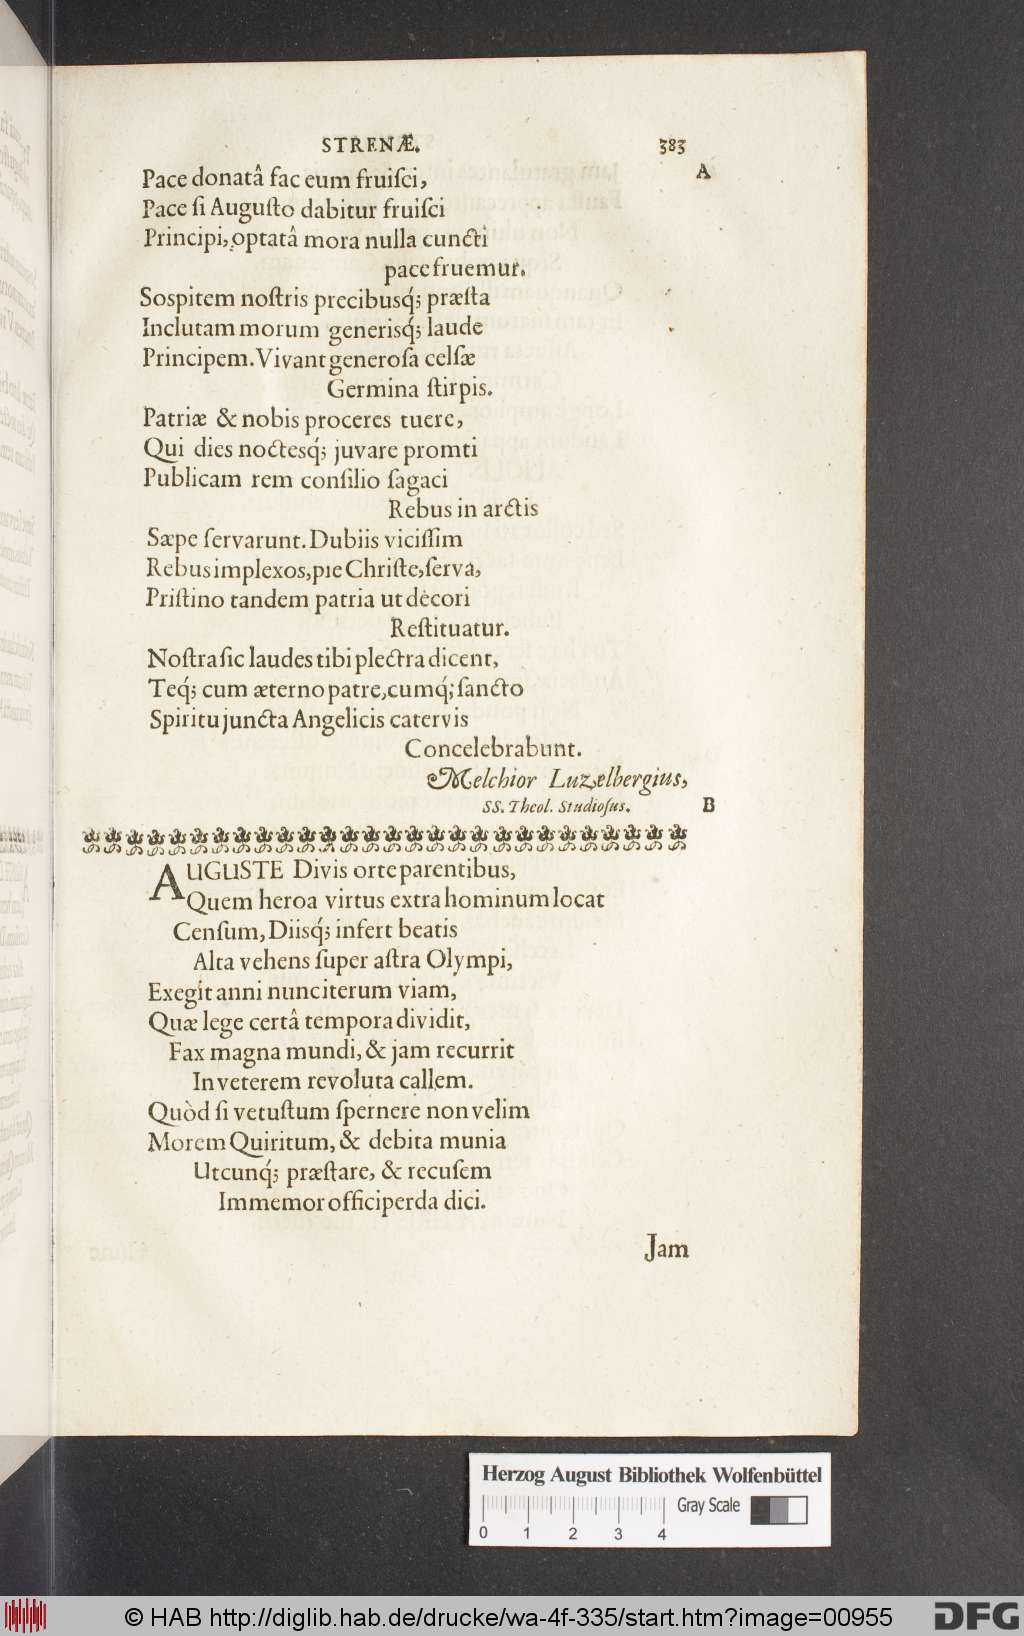 STRENÆ. 383
A
Pace donatâ fac eum fruiſci,
Pace ſi Auguſto dabitur fruiſci
Principi, optatâ mora nulla cuncti
pace fruemur.
Soſpitem noſtris precibusq́; præſta
Inclutam morum generisq́; laude
Principem. Vivant generoſa celſæ
Germina ſtirpis.
Patriæ & nobis proceres tuere,
Qui dies noctesq́; juvare promti
Publicam rem conſilio ſagaci
Rebus in arctis
Sæpe ſervarunt. Dubiis viciſſim
Rebus implexos, pie Chriſte, ſerva,
Priſtino tandem patria ut decori
Reſtituatur.
Noſtra ſic laudes tibi plectra dicent,
Teq́; cum æterno patre, cumq́; ſancto
Spiritu juncta Angelicis catervis
Concelebrabunt.
Melchior Luzelbergius,
SS. Theol. Studioſus.
B
AUGUSTE Divis orte parentibus,
Quem heroa virtus extra hominum locat
Cenſum, Diisq́; infert beatis
Alta vehens ſuper aſtra Olympi,
Exegit anni nunc iterum viam,
Quæ lege certâ tempora dividit,
Fax magna mundi, & jam recurrit
In veterem revoluta callem.
Quòd ſi vetuſtum ſpernere non velim
Morem Quiritum, & debita munia
Utcunq́; præſtare, & recuſem
Immemor officiperda dici.
Jam
Herzog August Bibliothek Wolfenbüttel
Gray Scale
0 1 2 3 4
© HAB http://diglib.hab.de/drucke/wa-4f-335/start.htm?image=00955
DFG